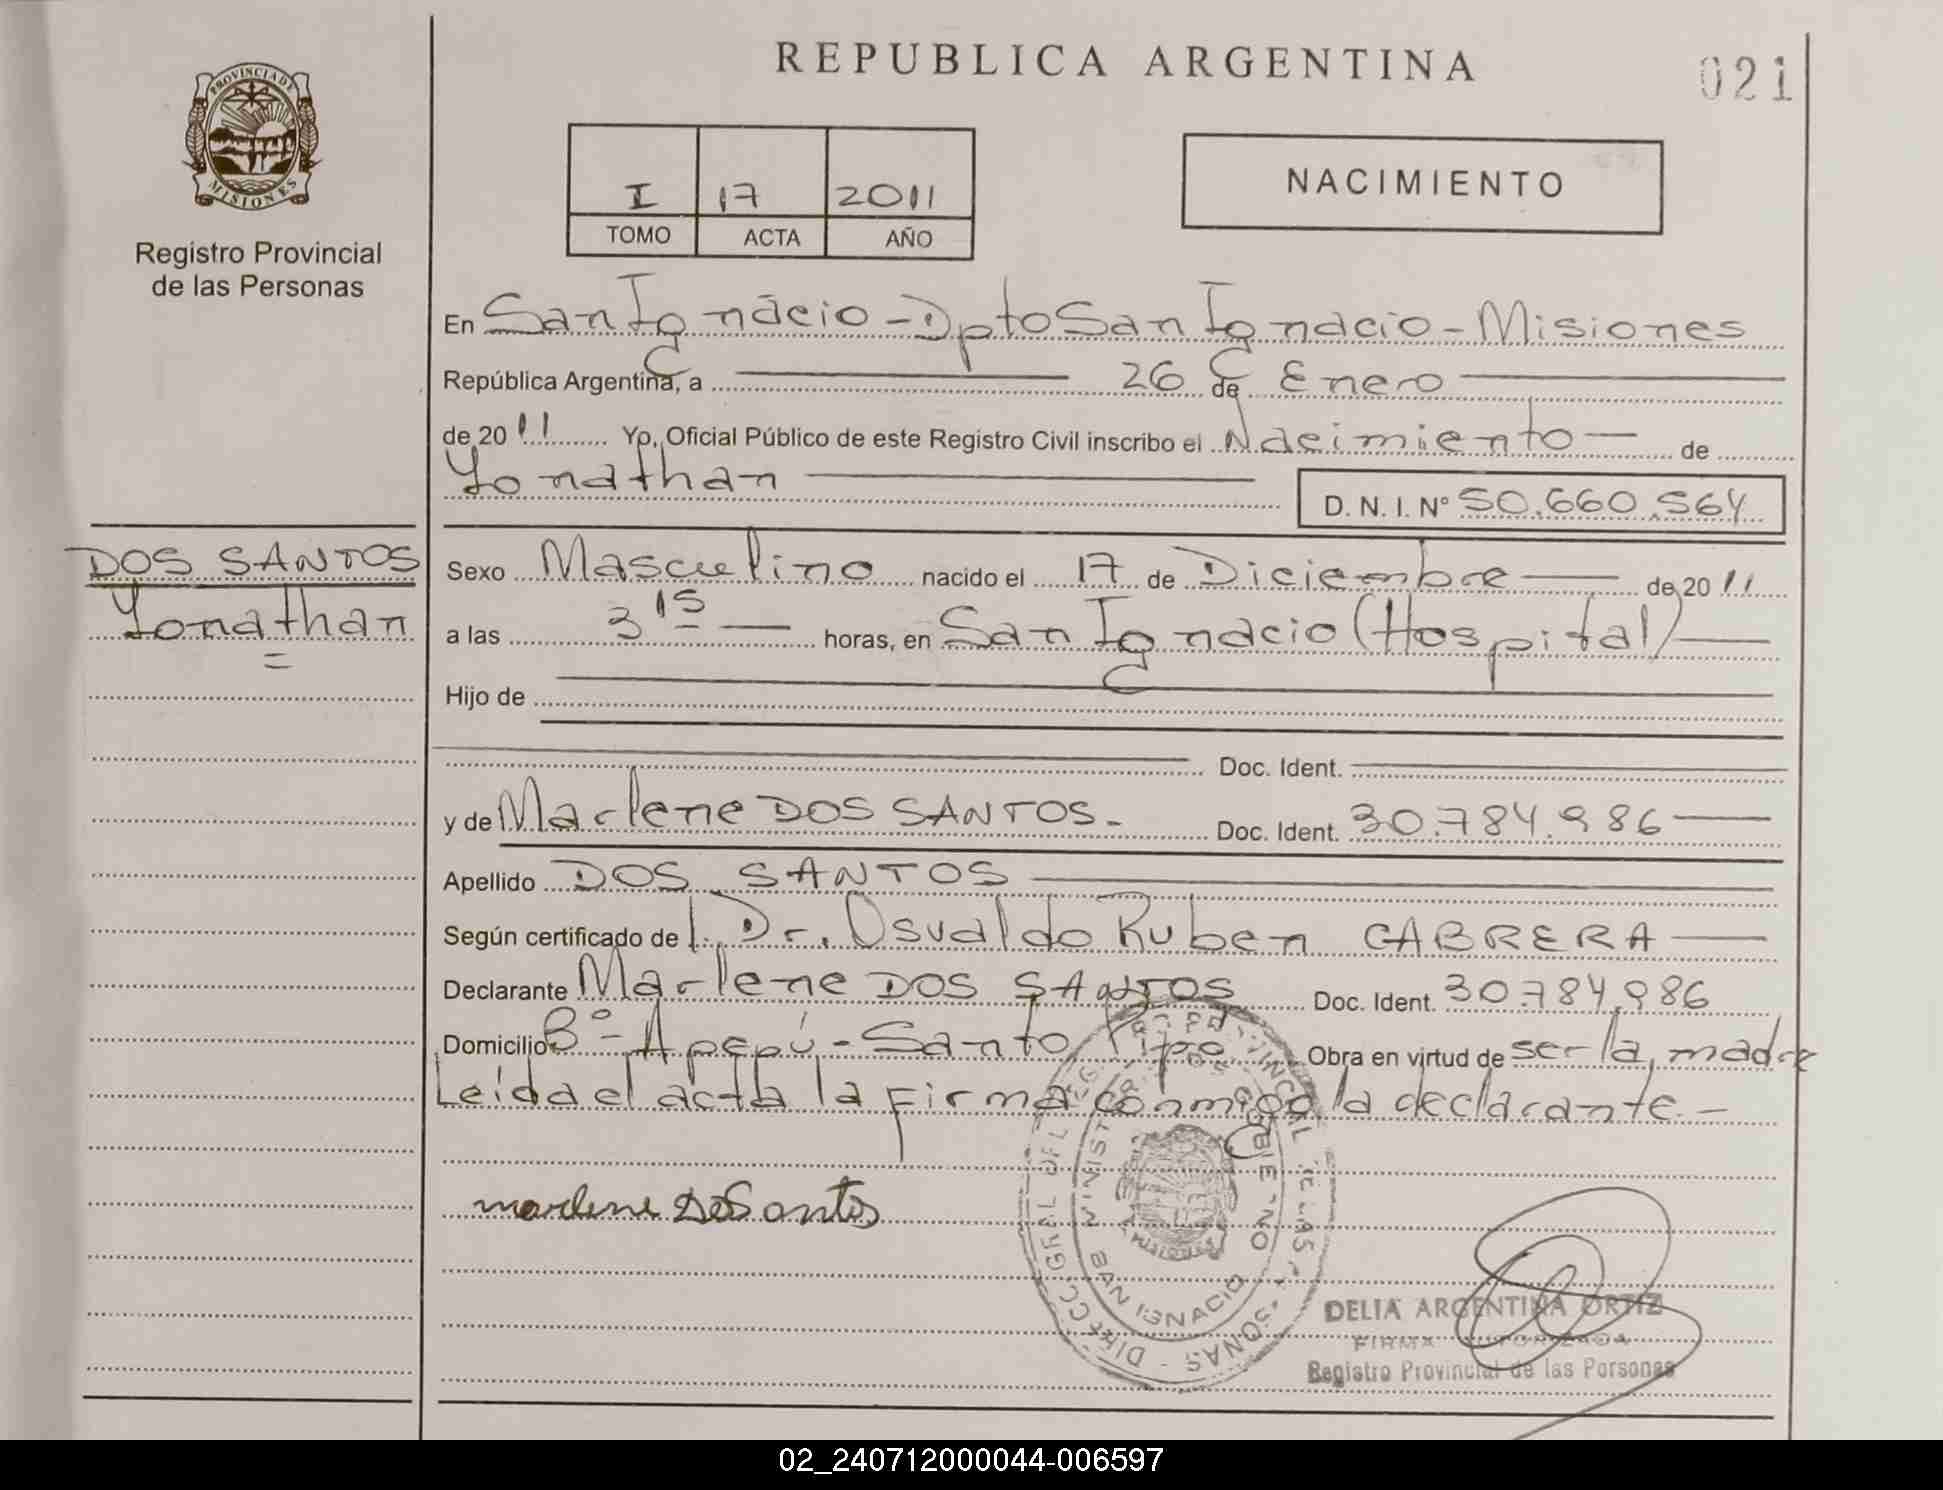 REPUBLICA ARGENTINA
021
PROVINCIA DE MISIONES
Registro Provincial
de las Personas
I 17 2011
TOMO ACTA AÑO
NACIMIENTO
En San Ignacio - Dpto San Ignacio - Misiones
República Argentina, a 26 de Enero
de 2011 Yo, Oficial Público de este Registro Civil inscribo el Nacimiento de
Yonathan
D. N. I. Nº 50.660.564
DOS SANTOS
Yonathan
Sexo Masculino nacido el 17 de Diciembre de 2011
a las 3 15 horas, en San Ignacio (Hospital)
Hijo de
Doc. Ident.
y de Marlene DOS SANTOS. Doc. Ident. 30.784.986
Apellido DOS SANTOS
Según certificado de l. Dr. Osvaldo Ruben CABRERA
Declarante Marlene DOS SANTOS Doc. Ident. 30.784.986
Domicilio Bº - Apepú - Santo Pipo Obra en virtud de ser la madre
Leída el acta la firma conmigo la declarante. -
marlene Dos Santos
DIRECC. GRAL DEL REG. PROVINCIAL DE LAS PERSONAS
SAN IGNACIO
MISIONES
DELIA ARGENTINA ORTIZ
FIRMA AUTORIZADA
Registro Provincial de las Personas
02_240712000044-006597